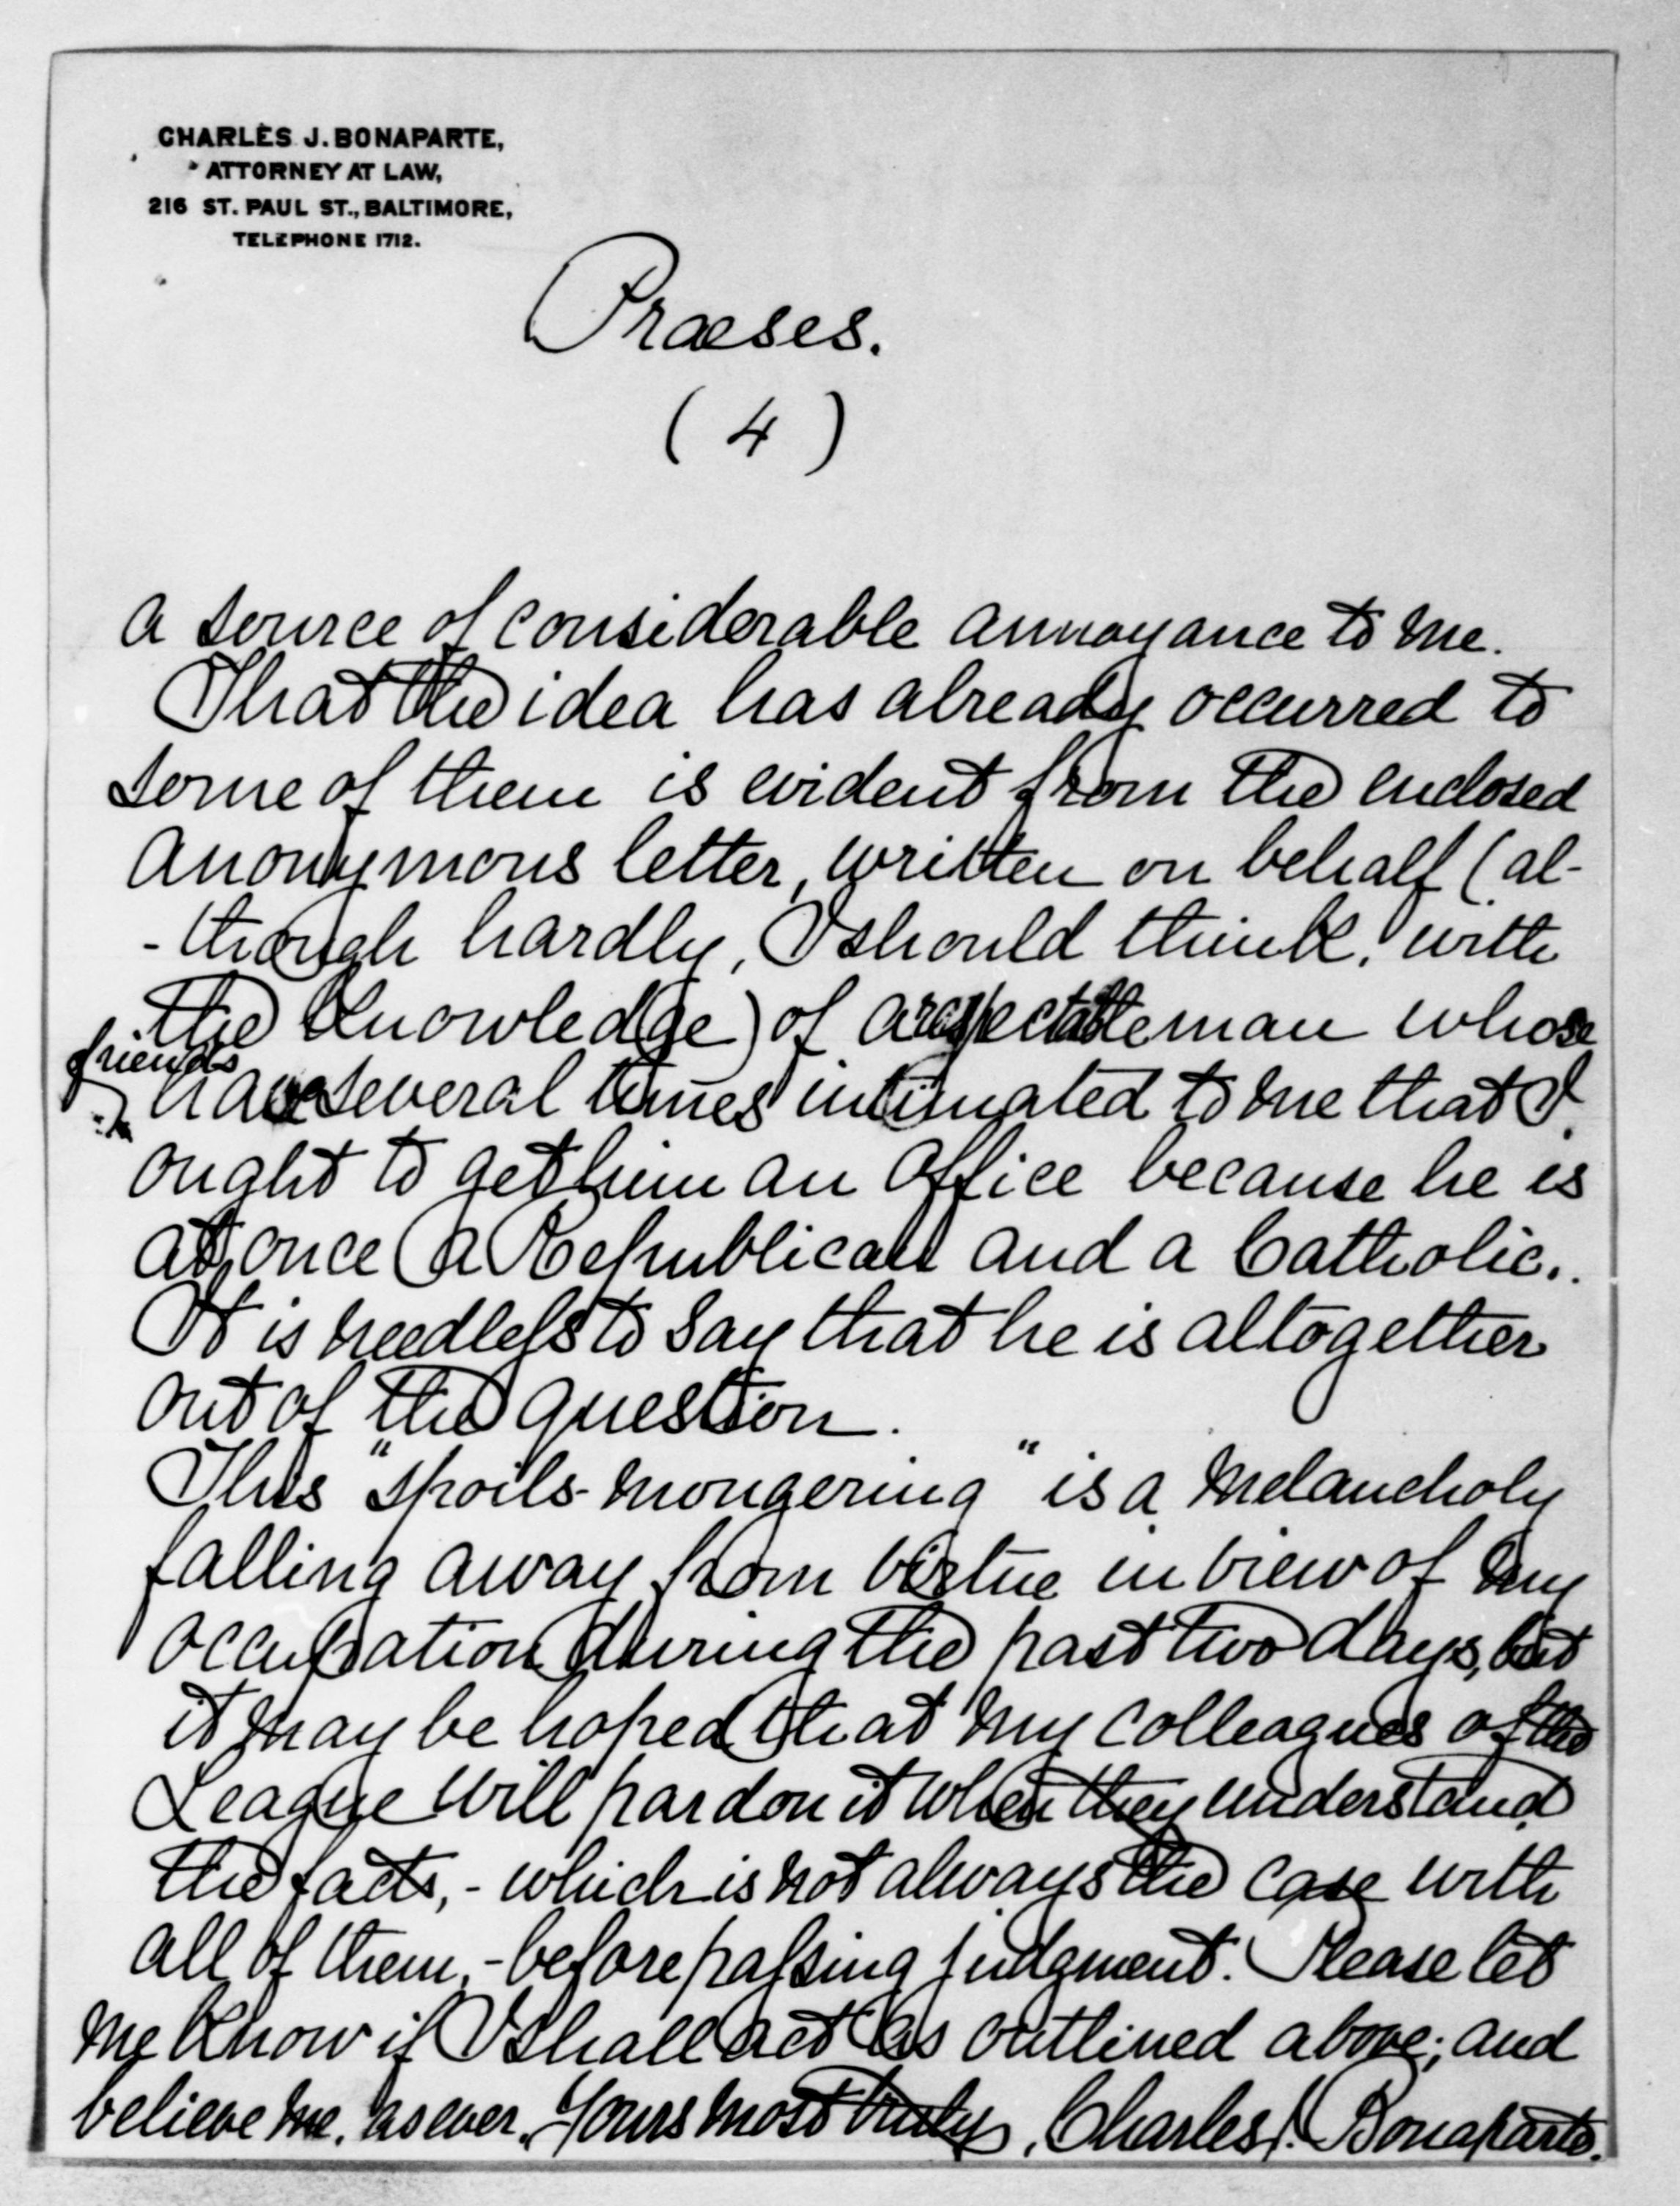 CHARLES J. BONAPARTE,
ATTORNEY AT LAW,
216 ST. PAUL ST., BALTIMORE,
TELEPHONE 1712.
Praeses.
(4)
a source of considerable annoyance to me.
That the idea has already occurred to
some of them is evident from the enclosed
anonymous letter, written on behalf (al-
-though hardly, I should think, with
the knowledge) of a respectable man whose
friends
have several times intimated to me that I
ought to get him an office because he is
at once a Republican and a Catholic.
It is needless to say that he is altogether
out of the question.
This "spoils-mongering" is a melancholy
falling away from virtue in view of my
occupation during the past two days, but
it may be hoped that my colleagues of the
League will pardon it when they understand
the facts, - which is not always the case with
all of them, - before passing judgment. Please let
me know if I shall act as outlined above; and
believe me, as ever, Yours most truly, Charles J. Bonaparte.